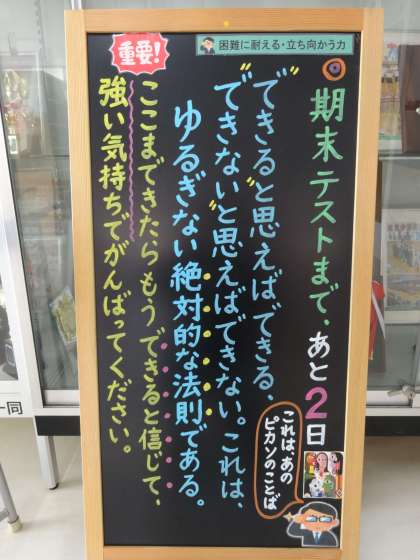 困難に耐える・立ち向かう力
重要!
期末テストまで、あと2日
"できる"と思えばできる、
"できない"と思えばできない。これは、
ゆるぎない絶対的な法則である。
ここまできたらもうできると信じて、
強い気持ちでがんばってください。
これは、あの
ピカソのことば
一同